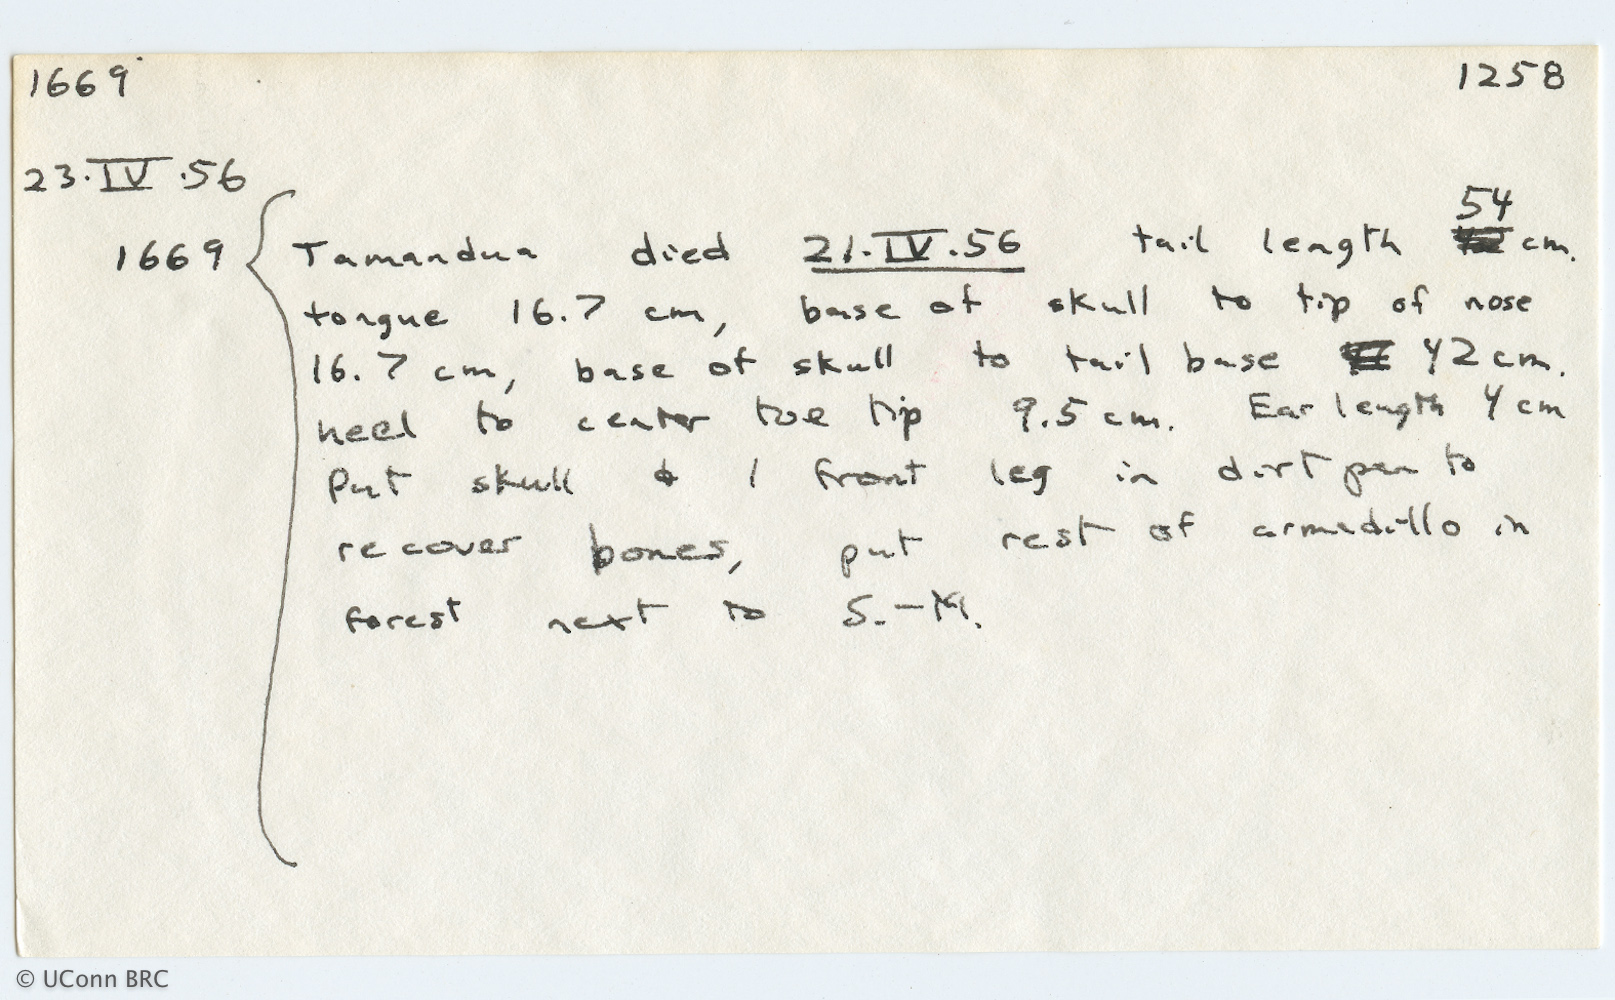 1669 1258
23.IV.56
54
1669 Tamandua died 21.IV.56 tail length cm.
tongue 16.7 cm, base of skull to tip of nose
16.7 cm, base of skull to tail base 42 cm.
heel to center toe tip 9.5 cm. Ear length 4 cm
Put skull & 1 front leg in dirt pan to
recover bones, put rest of armadillo in
forest next to S.-M.
© UConn BRC